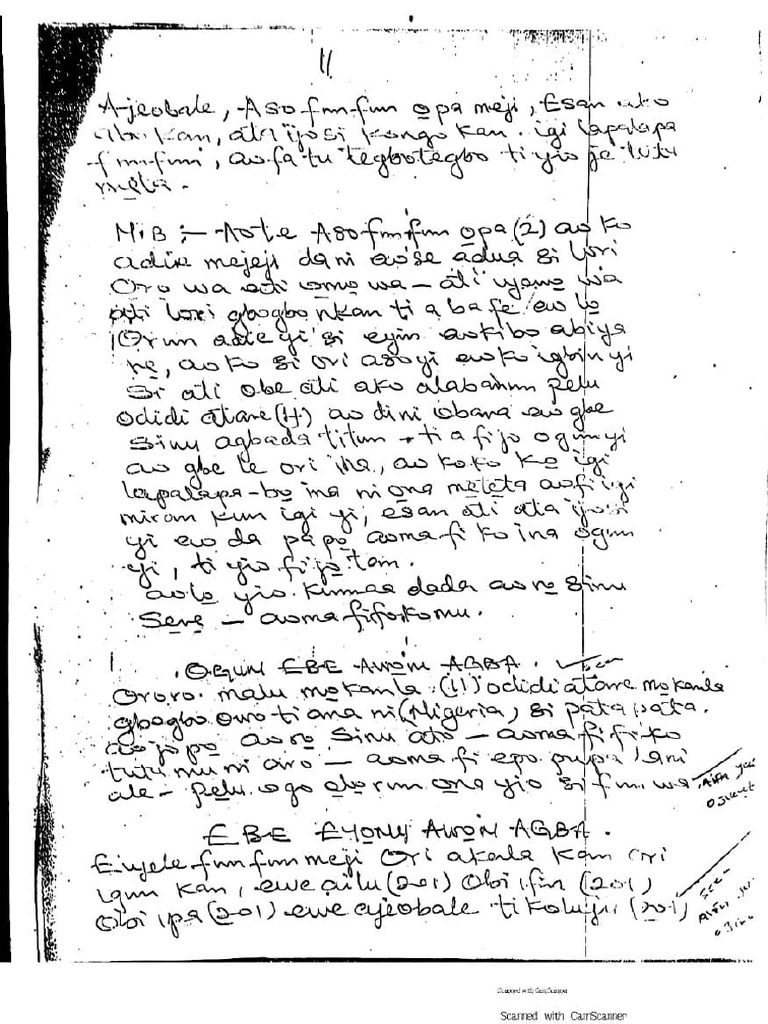 11
Ajeobale, Aso funfun opa meji, Esan ako
abo kan, ata ijosi kongo kan. igi lapalapa
funfun, ao fa tu tegbotegbo ti yio je lutu
meta.
N.B :- Note Aso funfun ọpa (2) ao ko
adie mejeji da ni ao se adua si lori
Oro wa ati ọmọ wa - ati iyawo wa
ati lori gbogbo nkan ti a ba fe ao lo
Orun adie yi si eyin ao kibo abiya
re, ao ko si ori aso yi ao ko igbin yi
si ati obe ati ako alabahun pelu
odidi atare (11) ao di ni obana ao gbe
sinu agbada titun ti a fi jo ogun yi
ao gbe le ori ina, ao koko ko igi
lapalapa bo ina ni ona meteta ao fi igi
miran kun igi yi, esan ati ata ijosi
yi ao da papo aoma fi ko ina ogun
yi, ti yio fi jo tan.
ao lo yio kunna dada ao ro sinu
Sere - aoma fi foko mu.
OGUN EBE AWON AGBA.
Ororo malu mokanla (11) odidi atare mokanla
gbogbo owo ti ana ni (Nigeria) si pata pata.
ao jo po ao ro sinu ato - aoma fi fi ko
tutu mu ni aro - aoma fi epo pupa la ni
ale - pelu ogo olorun ona yio si fun wa
EBE EYONU AWON AGBA.
Eiyele funfun meji Ori akala kan ori
igun kan, ewe ailu (201) Obi ifin (201)
Obi ipa (201) ewe ajeobale ti ko luju (201)
Scanned with CamScanner
Scanned with CamScanner